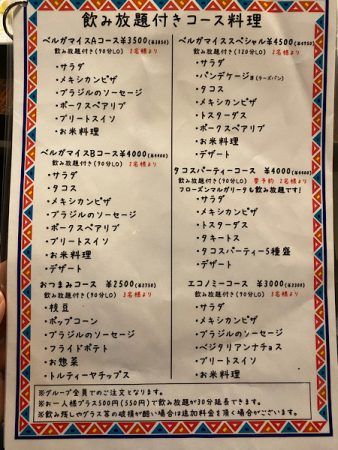 飲み放題付きコース料理
ベルガマイスAコース¥3500(¥3850)
飲み放題付き(90分LO) 2名様より
・サラダ
・メキシカンピザ
・ブラジルのソーセージ
・ポークスペアリブ
・ブリートスイソ
・お米料理
ベルガマイスBコース¥4000(¥4400)
飲み放題付き(90分LO) 2名様より
・サラダ
・タコス
・メキシカンピザ
・ブラジルのソーセージ
・ポークスペアリブ
・ブリートスイソ
・お米料理
・デザート
おつまみコース ¥2500(¥2750)
飲み放題付き(90分LO) 2名様より
・枝豆
・ポップコーン
・ブラジルのソーセージ
・フライドポテト
・お惣菜
・トルティーヤチップス
ベルガマイススペシャル¥4500(¥4950)
飲み放題付き(120分LO) 2名様より
・サラダ
・パンデケージョ(チーズパン)
・タコス
・メキシカンピザ
・トスターダス
・ポークスペアリブ
・お米料理
・デザート
タコスパーティーコース ¥4000(¥4400)
飲み放題付き(90分LO) 要予約 2名様より
フローズンマルガリータも飲み放題です!
・サラダ
・メキシカンピザ
・トスターダス
・タキートス
・タコスパーティー5種盛
・デザート
エコノミーコース ¥3000(¥3300)
飲み放題付き(90分LO) 2名様より
・サラダ
・メキシカンピザ
・ブラジルのソーセージ
・ベジタリアンナチョス
・ブリートスイソ
・お米料理
※グループ全員でのご注文となります。
※お一人様プラス500円(550円)で飲み放題が30分延長できます。
※飲み残しやグラス等の破損が酷い場合は追加料金を頂く場合がございます。